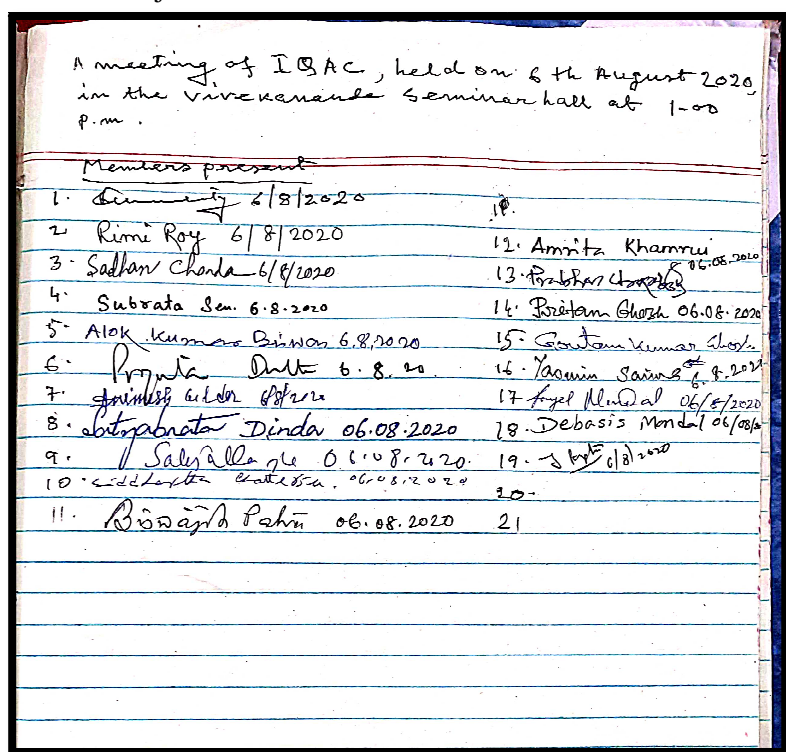 A meeting of IQAC, held on 6th August 2020,
in the Vivekananda Seminar hall at 1-00
p.m.
Members present
1. 6/8/2020
2 Rimi Roy 6/8/2020
3. Sadhan Chanda 6/8/2020
4. Subrata Sen. 6.8.2020
5. Alok Kumar Biswas 6.8.2020
6. Dutta 6.8.20
7. Animesh 6/8/2020
8. Satyabrata Dinda 06.08.2020
9. 06.08.2020.
10. Siddhartha Chatterjee. 06.08.2020
11. Biswajit 06.08.2020
12. Amrita Khamrui
06.08.2020
13. Prabhas
14. Pritam Ghosh 06.08.2020
15. Goutam Kumar Ghosh.
16. Yasmin 6.8.2020
17 Mondal 06/8/2020
18. Debasis Mondal 06/08/
19. 6/8/2020
20-
21